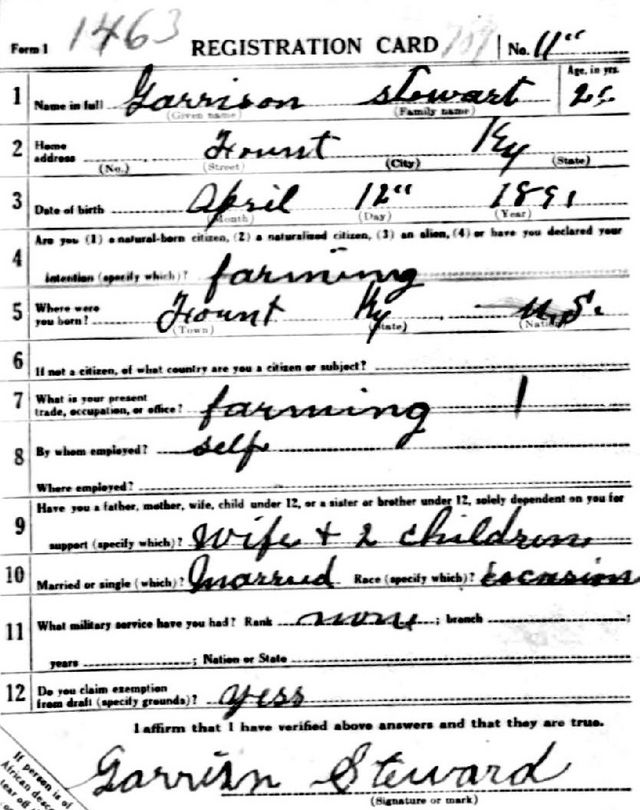 1463
Form 1 REGISTRATION CARD No. 11
Age, in yrs.
1 Name in full Garrison Stewart
(Given name) (Family name)
2 Home address Fount Ky
(No.) (Street) (City) (State)
3 Date of birth April 12 1891
(Month) (Day) (Year)
Are you (1) a natural-born citizen, (2) a naturalized citizen, (3) an alien, (4) or have you declared your
4 intention (specify which)? farming
5 Where were you born? Fount Ky U.S.
(Town) (State) (Nation)
6 If not a citizen, of what country are you a citizen or subject?
7 What is your present trade, occupation, or office? farming
8 By whom employed? self
Where employed?
Have you a father, mother, wife, child under 12, or a sister or brother under 12, solely dependent on you for
9 support (specify which)? Wife + 2 children
10 Married or single (which)? Married Race (specify which)?
11 What military service have you had? Rank none ; branch ;
years ; Nation or State
12 Do you claim exemption from draft (specify grounds)? yess
I affirm that I have verified above answers and that they are true.
Garrison Steward
(Signature or mark)
If person is of
African
tear off